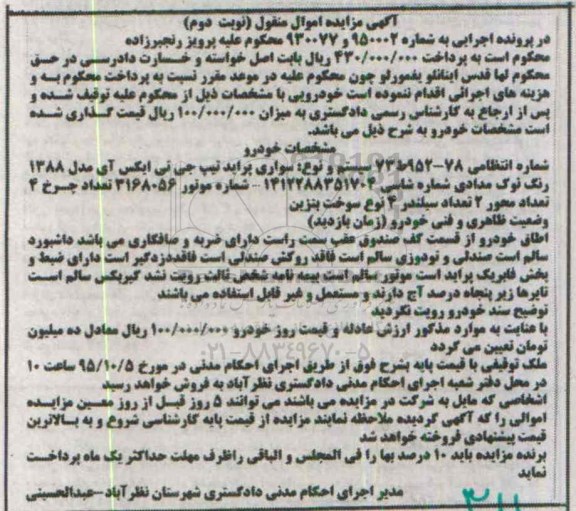 آگهی مزایده اموال منقول (نوبت دوم)
در پرونده اجرایی به شماره ۹۵۰۰۰۲ و ۹۳۰۰۷۷ محکوم علیه پرویز رنجبرزاده
محکوم است به پرداخت ۴۳۰/۰۰۰/۰۰۰ ریال بابت اصل خواسته و خسارت دادرسی در حق
محکوم لها قدس اینانلو یفمورلو چون محکوم علیه در موعد مقرر نسبت به پرداخت محکوم به و
هزینه های اجرائی اقدام ننموده است خودرویی با مشخصات ذیل از محکوم علیه توقیف شده و
پس از ارجاع به کارشناس رسمی دادگستری به میزان ۱۰۰/۰۰۰/۰۰۰ ریال قیمت گذاری شده
است مشخصات خودرو به شرح ذیل می باشد.
مشخصات خودرو
شماره انتظامی ۷۸-۹۵۲ و نوع: سواری پراید تیپ جی تی ایکس آی مدل ۱۳۸۸
رنگ نوک مدادی شماره شاسی ۱۴۱۲۲۸۸۳۵۱۷۰۴ - شماره موتور ۳۱۶۸۰۵۶ تعداد چرخ ۴
تعداد محور ۲ تعداد سیلندر ۴ نوع سوخت بنزین
وضعیت ظاهری و فنی خودرو (زمان بازدید)
اطاق خودرو از قسمت کف صندوق عقب سمت راست دارای ضربه و صافکاری می باشد داشبورد
سالم است صندلی و تودوزی سالم است فاقد روکش صندلی است فاقددزدگیر است دارای ضبط و
پخش فابریک پراید است موتور سالم است بیمه نامه شخص ثالث رویت نشد گیربکس سالم است
تایرها زیر پنجاه درصد آج دارند و مستعمل و غیر قابل استفاده می باشند
توضیح سند خودرو رویت نگردید
با عنایت به موارد مذکور ارزش عادله و قیمت روز خودرو ۱۰۰/۰۰۰/۰۰۰ ریال معادل ده میلیون
تومان تعیین می گردد
ملک توقیفی با قیمت پایه بشرح فوق از طریق اجرای احکام مدنی در مورخ ۹۵/۱۰/۵ ساعت ۱۰
در محل دفتر شعبه اجرای احکام مدنی دادگستری نظرآباد به فروش خواهد رسید
اشخاصی که مایل به شرکت در مزایده می باشند می توانند ۵ روز قبل از روز مزایده
اموالی را که آگهی گردیده ملاحظه نمایند مزایده از قیمت پایه کارشناسی شروع و به بالاترین
قیمت پیشنهادی فروخته خواهد شد
برنده مزایده باید ۱۰ درصد بها را فی المجلس و الباقی راظرف مهلت حداکثر یک ماه پرداخت
نماید
مدیر اجرای احکام مدنی دادگستری شهرستان نظرآباد-عبدالحسینی
۰۲۱-۸۸۳۴۹۶۷۰-۵